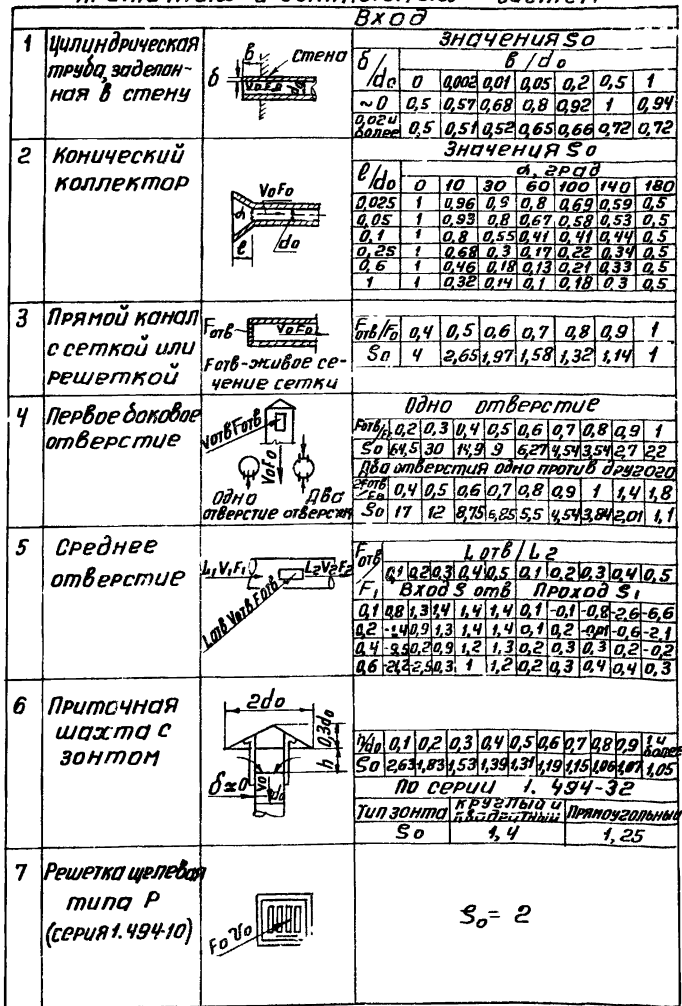 Вход
1 Цилиндрическая труба, заделанная в стену
б
в
Стена
V₀F₀
Значения S₀
б/d₀ в/d₀
0 0,002 0,01 0,05 0,2 0,5 1
~0 0,5 0,57 0,68 0,8 0,92 1 0,94
0,02 и более 0,5 0,51 0,52 0,65 0,66 0,72 0,72
2 Конический коллектор
V₀F₀
α
d₀
ℓ
Значения S₀
ℓ/d₀ α, град
0 10 30 60 100 140 180
0,025 1 0,96 0,9 0,8 0,69 0,59 0,5
0,05 1 0,93 0,8 0,67 0,58 0,53 0,5
0,1 1 0,8 0,55 0,41 0,41 0,44 0,5
0,25 1 0,68 0,3 0,17 0,22 0,34 0,5
0,6 1 0,46 0,18 0,13 0,21 0,33 0,5
1 1 0,32 0,14 0,1 0,18 0,3 0,5
3 Прямой канал с сеткой или решеткой
Fотв
V₀F₀
Fотв-живое сечение сетки
Fотв/F₀ 0,4 0,5 0,6 0,7 0,8 0,9 1
S₀ 4 2,65 1,97 1,58 1,32 1,14 1
4 Первое боковое отверстие
Vотв Fотв
V₀F₀
Одно отверстие
Два отверстия
Одно отверстие
Fотв/F₀ 0,2 0,3 0,4 0,5 0,6 0,7 0,8 0,9 1
S₀ 64,5 30 14,9 9 6,27 4,54 3,54 2,7 2,2
Два отверстия одно против другого
2Fотв/F₀ 0,4 0,5 0,6 0,7 0,8 0,9 1 1,4 1,8
S₀ 17 12 8,75 6,85 5,5 4,54 3,84 2,01 1,1
5 Среднее отверстие
L₁V₁F₁
L₂V₂F₂
Lотв Vотв Fотв
Fотв/F₁ Lотв/L₂
0,1 0,2 0,3 0,4 0,5 0,1 0,2 0,3 0,4 0,5
Вход S отв Проход S₁
0,1 0,8 1,3 1,4 1,4 1,4 0,1 -0,1 -0,8 -2,6 -6,6
0,2 -1,4 0,9 1,3 1,4 1,4 0,1 0,2 -0,01 -0,6 -2,1
0,4 -9,5 0,2 0,9 1,2 1,3 0,2 0,3 0,3 0,2 -0,2
0,6 -21,2 -2,5 0,3 1 1,2 0,2 0,3 0,4 0,4 0,3
6 Приточная шахта с зонтом
2d₀
0,3d₀
h
δ≈0
V₀
d₀
h/d₀ 0,1 0,2 0,3 0,4 0,5 0,6 0,7 0,8 0,9 1 и более
S₀ 2,63 1,83 1,53 1,39 1,31 1,19 1,15 1,06 1,07 1,05
По серии 1. 494-32
Тип зонта круглый и квадратный Прямоугольный
S₀ 1,4 1,25
7 Решетка щелевая типа Р (серия 1.494-10)
F₀ V₀
S₀= 2